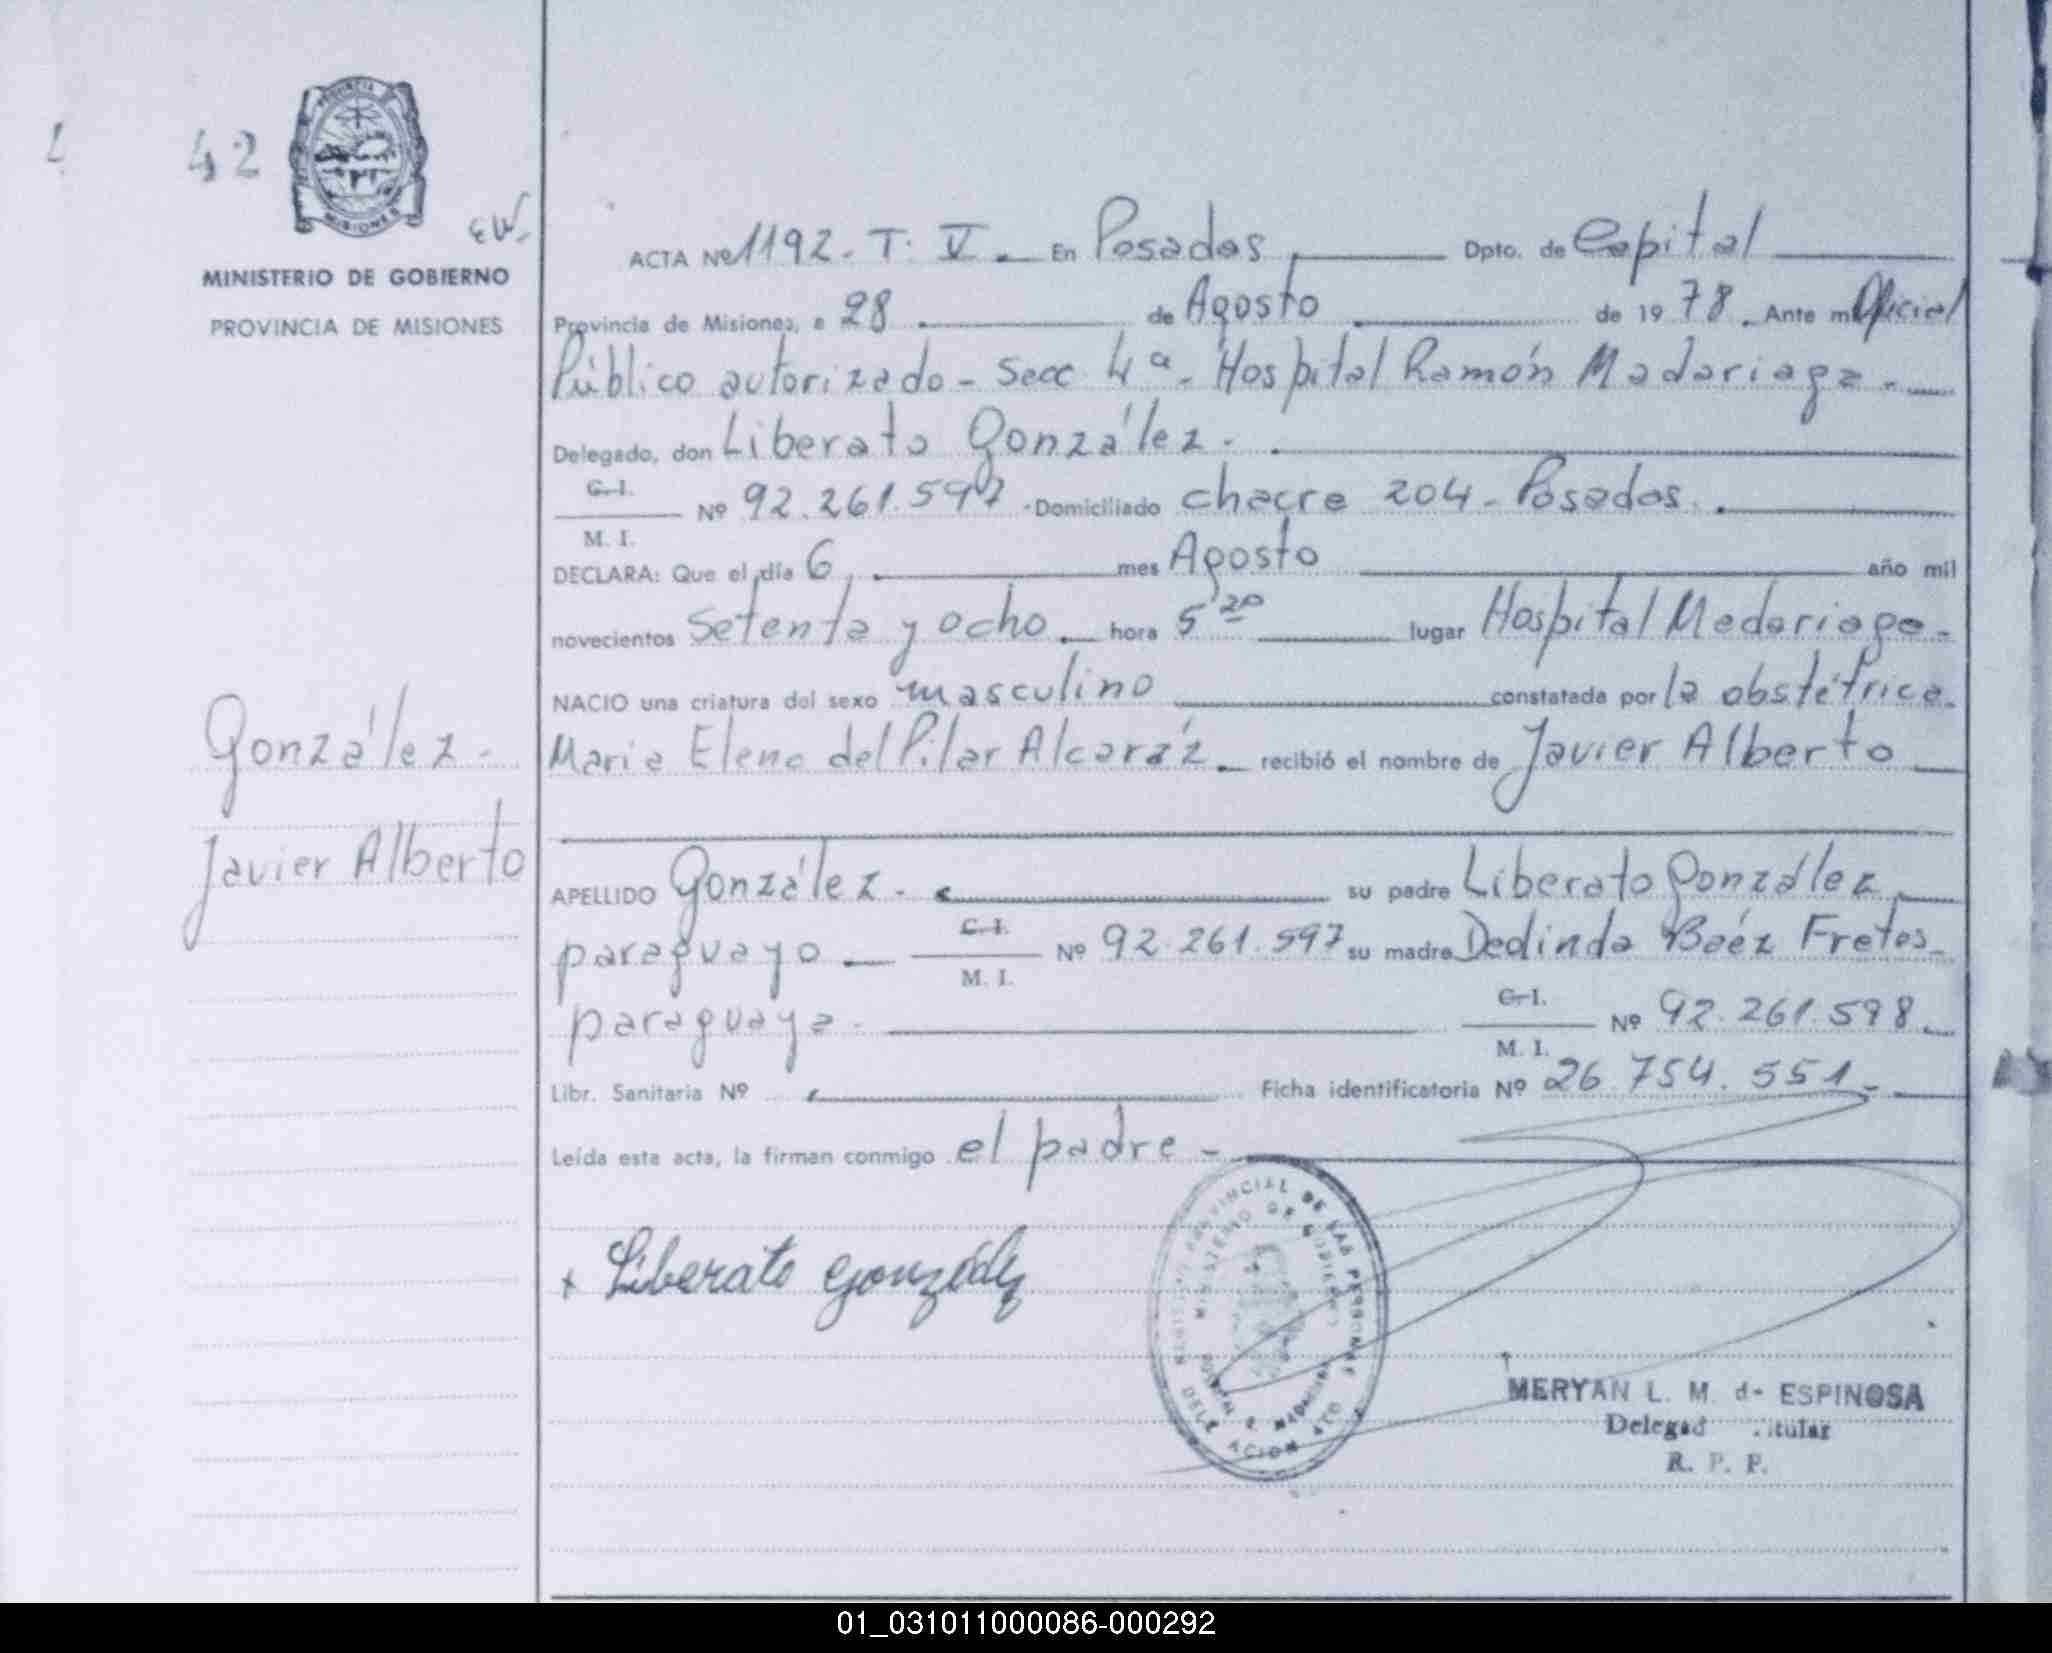 42
PROVINCIA DE
MISIONES
MINISTERIO DE GOBIERNO
PROVINCIA DE MISIONES
González -
Javier Alberto
ACTA Nº 1192 - T. V. - En Posadas, Dpto. de Capital
Provincia de Misiones, a 28 de Agosto de 1978. Ante mí Oficial
Público autorizado - Secc 4ª - Hospital Ramón Madariaga -
Delegado, don Liberato González -
C. I.
M. I. Nº 92.261.597 - Domiciliado chacra 204 - Posadas.
DECLARA: Que el día 6, mes Agosto año mil
novecientos setenta y ocho. hora 5 20 lugar Hospital Madariaga -
NACIO una criatura del sexo masculino constatada por la obstétrica
Maria Elena del Pilar Alcaráz. recibió el nombre de Javier Alberto
APELLIDO González - su padre Liberato González
paraguayo C. I.
M. I. Nº 92.261.597 su madre Dedinda Baéz Fretes -
paraguaya - C. I.
M. I. Nº 92.261.598
Libr. Sanitaria Nº Ficha identificatoria Nº 26.754.551 -
Leída esta acta, la firman conmigo el padre -
x Liberato González
PROVINCIAL DE LAS PERSONAS
MINISTERIO DE GOBIERNO
MERYAN L. M. de ESPINOSA
R. P. P.
01_031011000086-000292